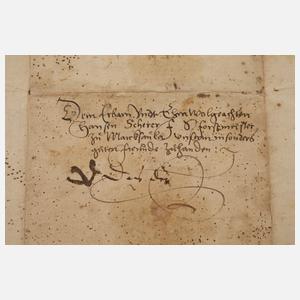 Dem Erbarn Undt Ehrnwolgeachten
Hansen Scherer S. forstmeister
zu Marcksuhla unserm insonders
guten freunde zuhanden